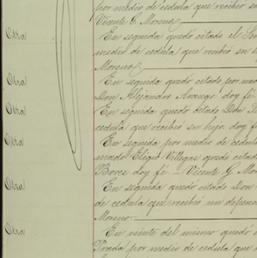 por medio de cedula que recibio su
Vicente G. Moreno
Otra En seguida quedó citado el
medio de cedula que recibió su
Moreno
Otra En seguida quedó citado por me
Don Alejandro doy fé
Otra En seguida quedó citado Don
cedula que recibió su hijo, doy fé
Otra En seguida por medio de cedula
Eligio Villegas quedó citado
doy fé Vicente G. Mo
Otra En seguida quedó citado Don
de cedula que recibió un depen
Moreno
Otra En veinte del mismo quedó
por medio de cedula que